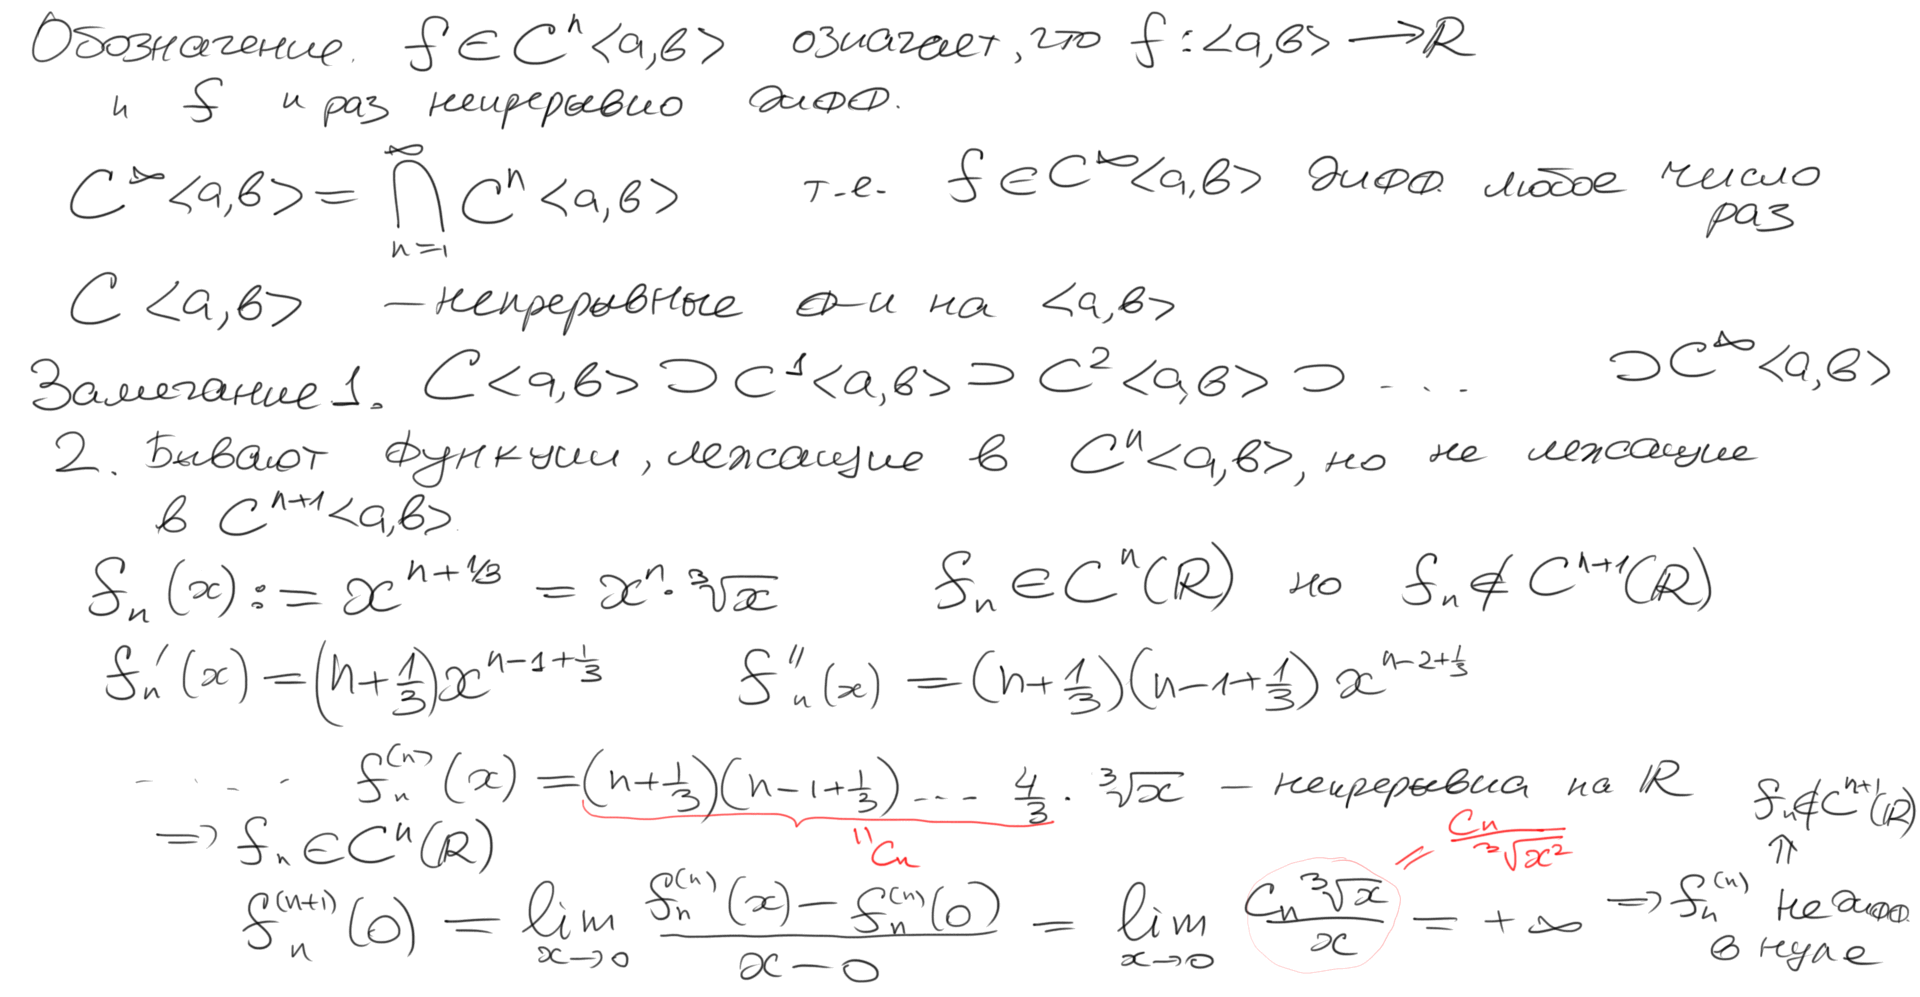 Обозначение. f ∈ Cⁿ<a,b> означает, что f : <a,b> → ℝ
и f n раз непрерывно дифф.
C^∞<a,b> = ⋂_{n=1}^{∞} Cⁿ<a,b> т.е. f ∈ C^∞<a,b> дифф. любое число раз
C<a,b> – непрерывные ф-и на <a,b>
Замечание 1. C<a,b> ⊃ C¹<a,b> ⊃ C²<a,b> ⊃ .... ⊃ C^∞<a,b>
2. Бывают функции, лежащие в Cⁿ<a,b>, но не лежащие
в C^{n+1}<a,b>
f_n(x) := x^{n+1/3} = xⁿ · ∛x f_n ∈ Cⁿ(ℝ) но f_n ∉ C^{n+1}(ℝ)
f_n'(x) = (n+1/3)x^{n-1+1/3} f_n''(x) = (n+1/3)(n-1+1/3) x^{n-2+1/3}
..... f_n^{(n)}(x) = (n+1/3)(n-1+1/3) .... 4/3 · ∛x – непрерывна на ℝ f_n ∉ C^{n+1}(ℝ)
=> f_n ∈ Cⁿ(ℝ) " C_n = C_n/∛x² ⇑
f_n^{(n+1)}(0) = lim_{x→0} (f_n^{(n)}(x) – f_n^{(n)}(0))/(x – 0) = lim_{x→0} (C_n ∛x)/x = +∞ => f_n^{(n)} не дифф. в нуле